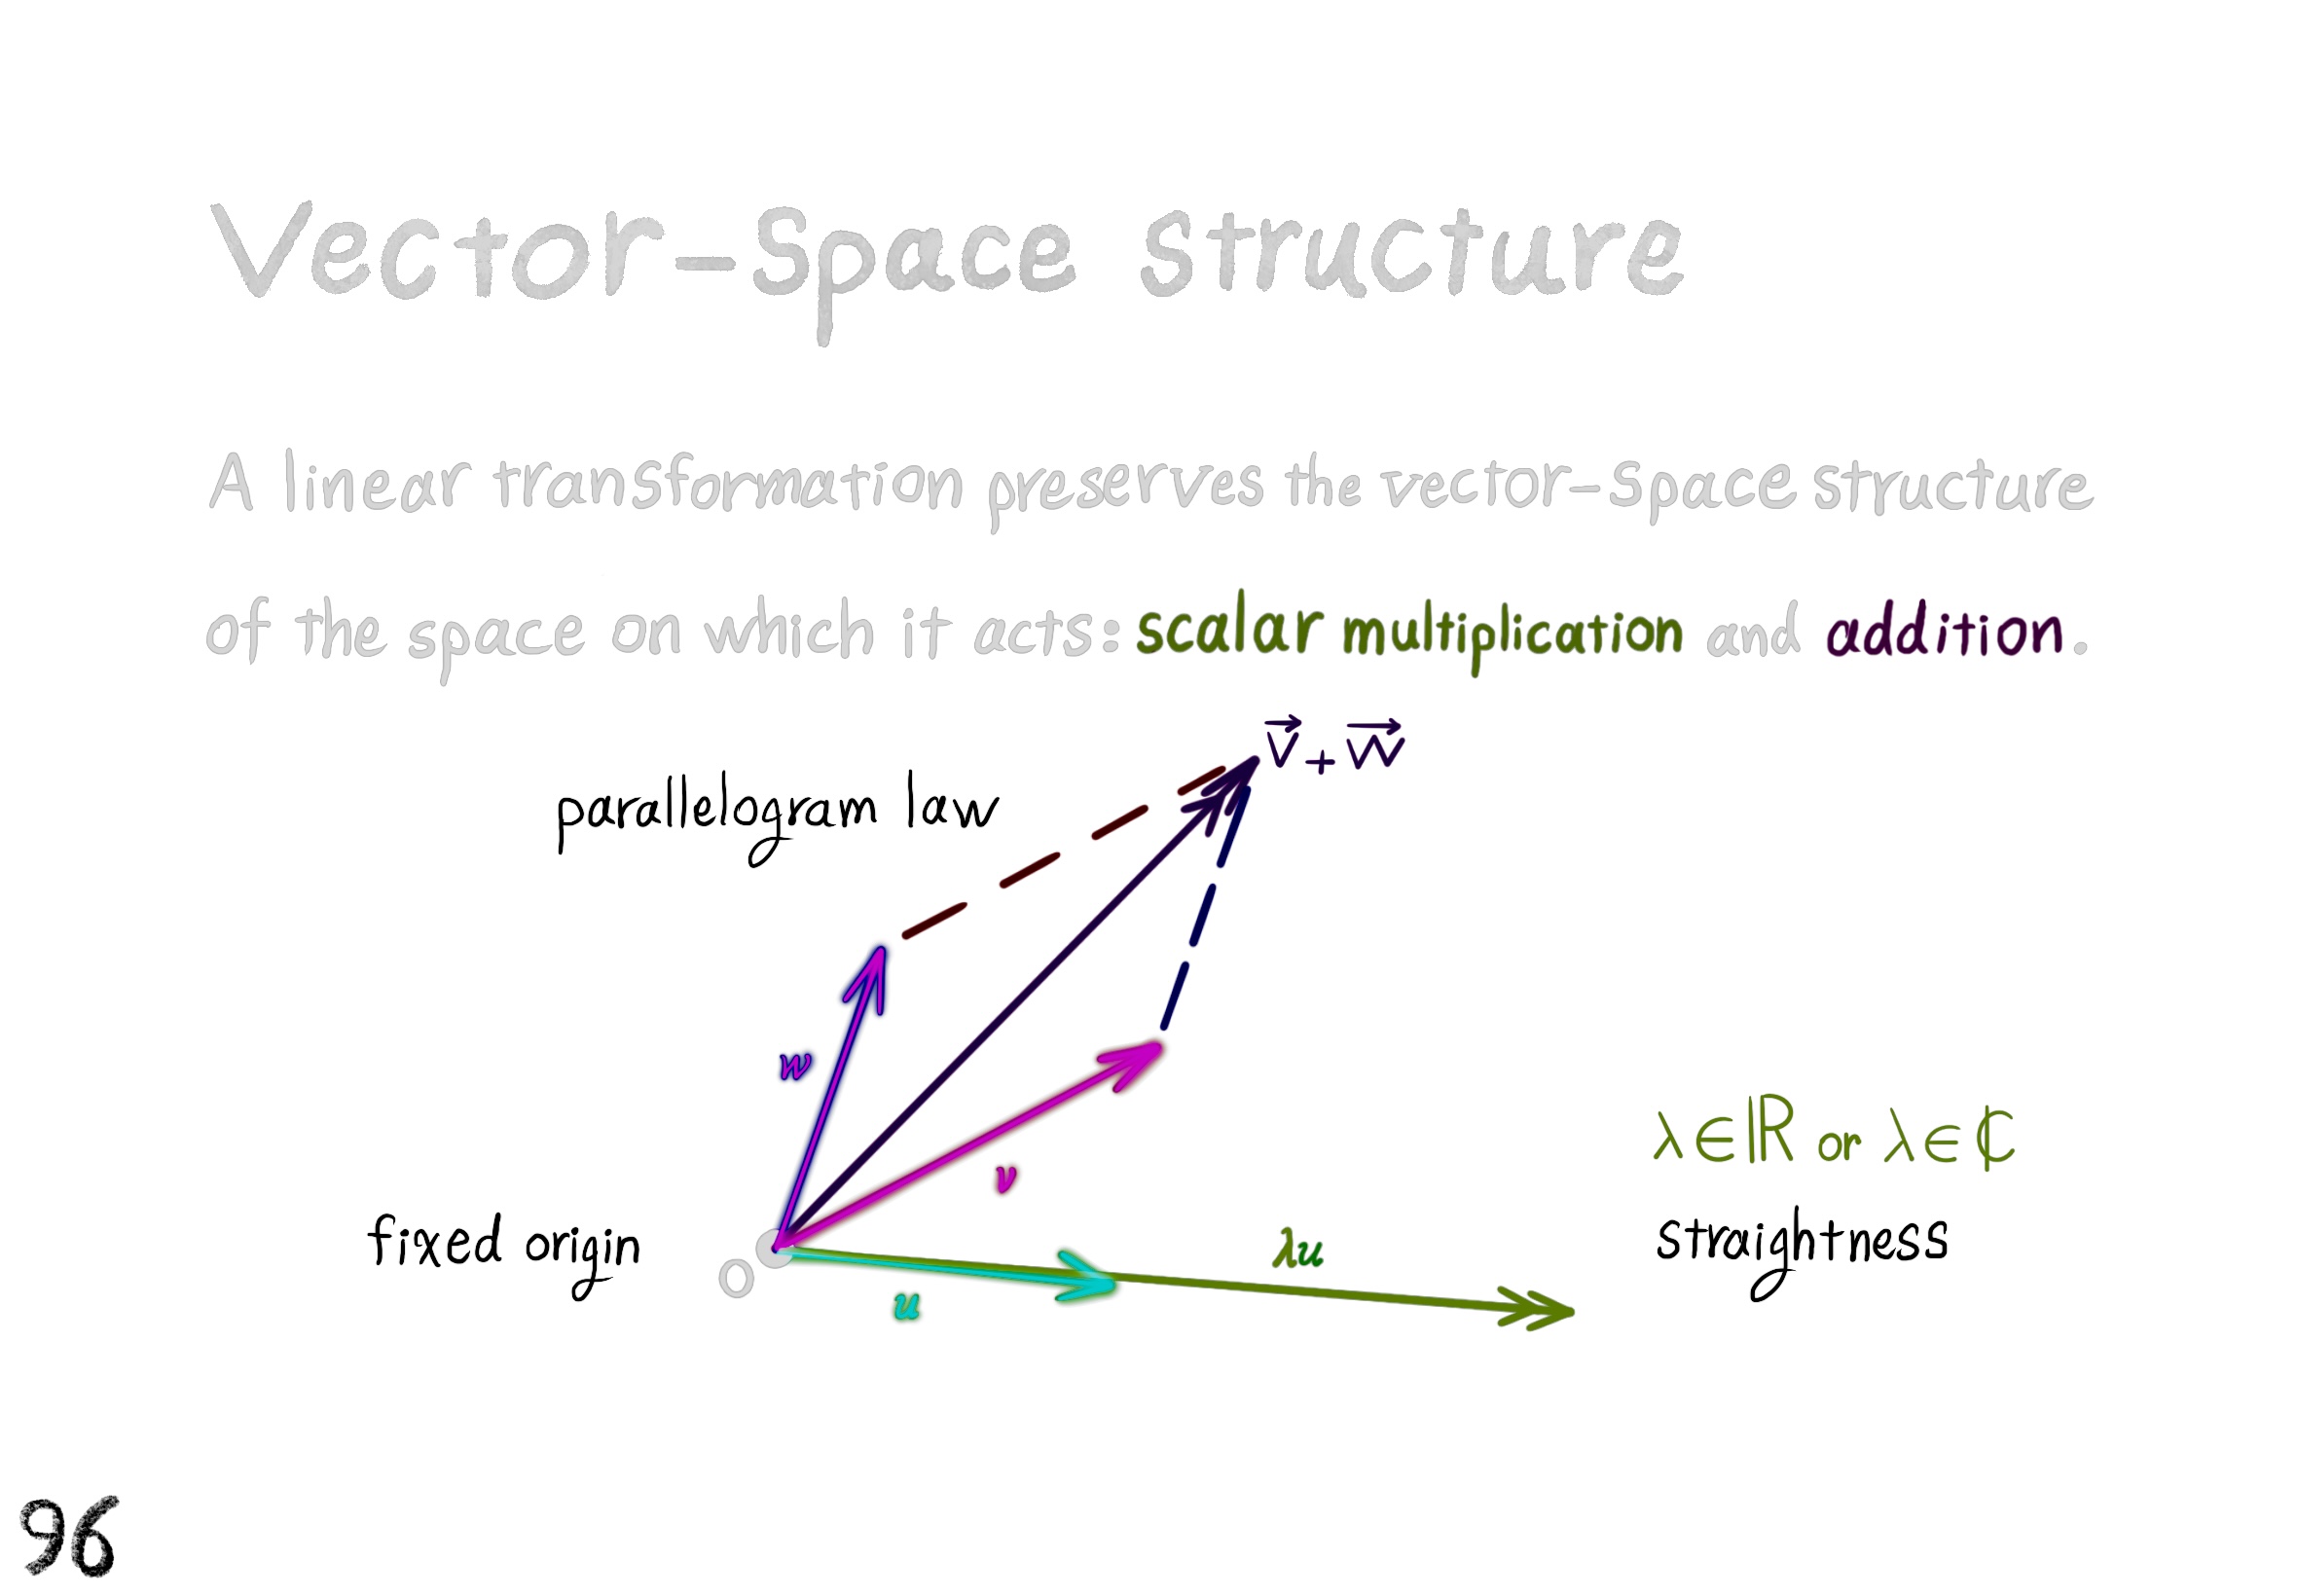 Vector-Space structure
A linear transformation preserves the vector-space structure
of the space on which it acts: scalar multiplication and addition.
v⃗ + w⃗
parallelogram law
w
v
λ∈ℝ or λ∈ℂ
fixed origin
straightness
λu
O
u
96